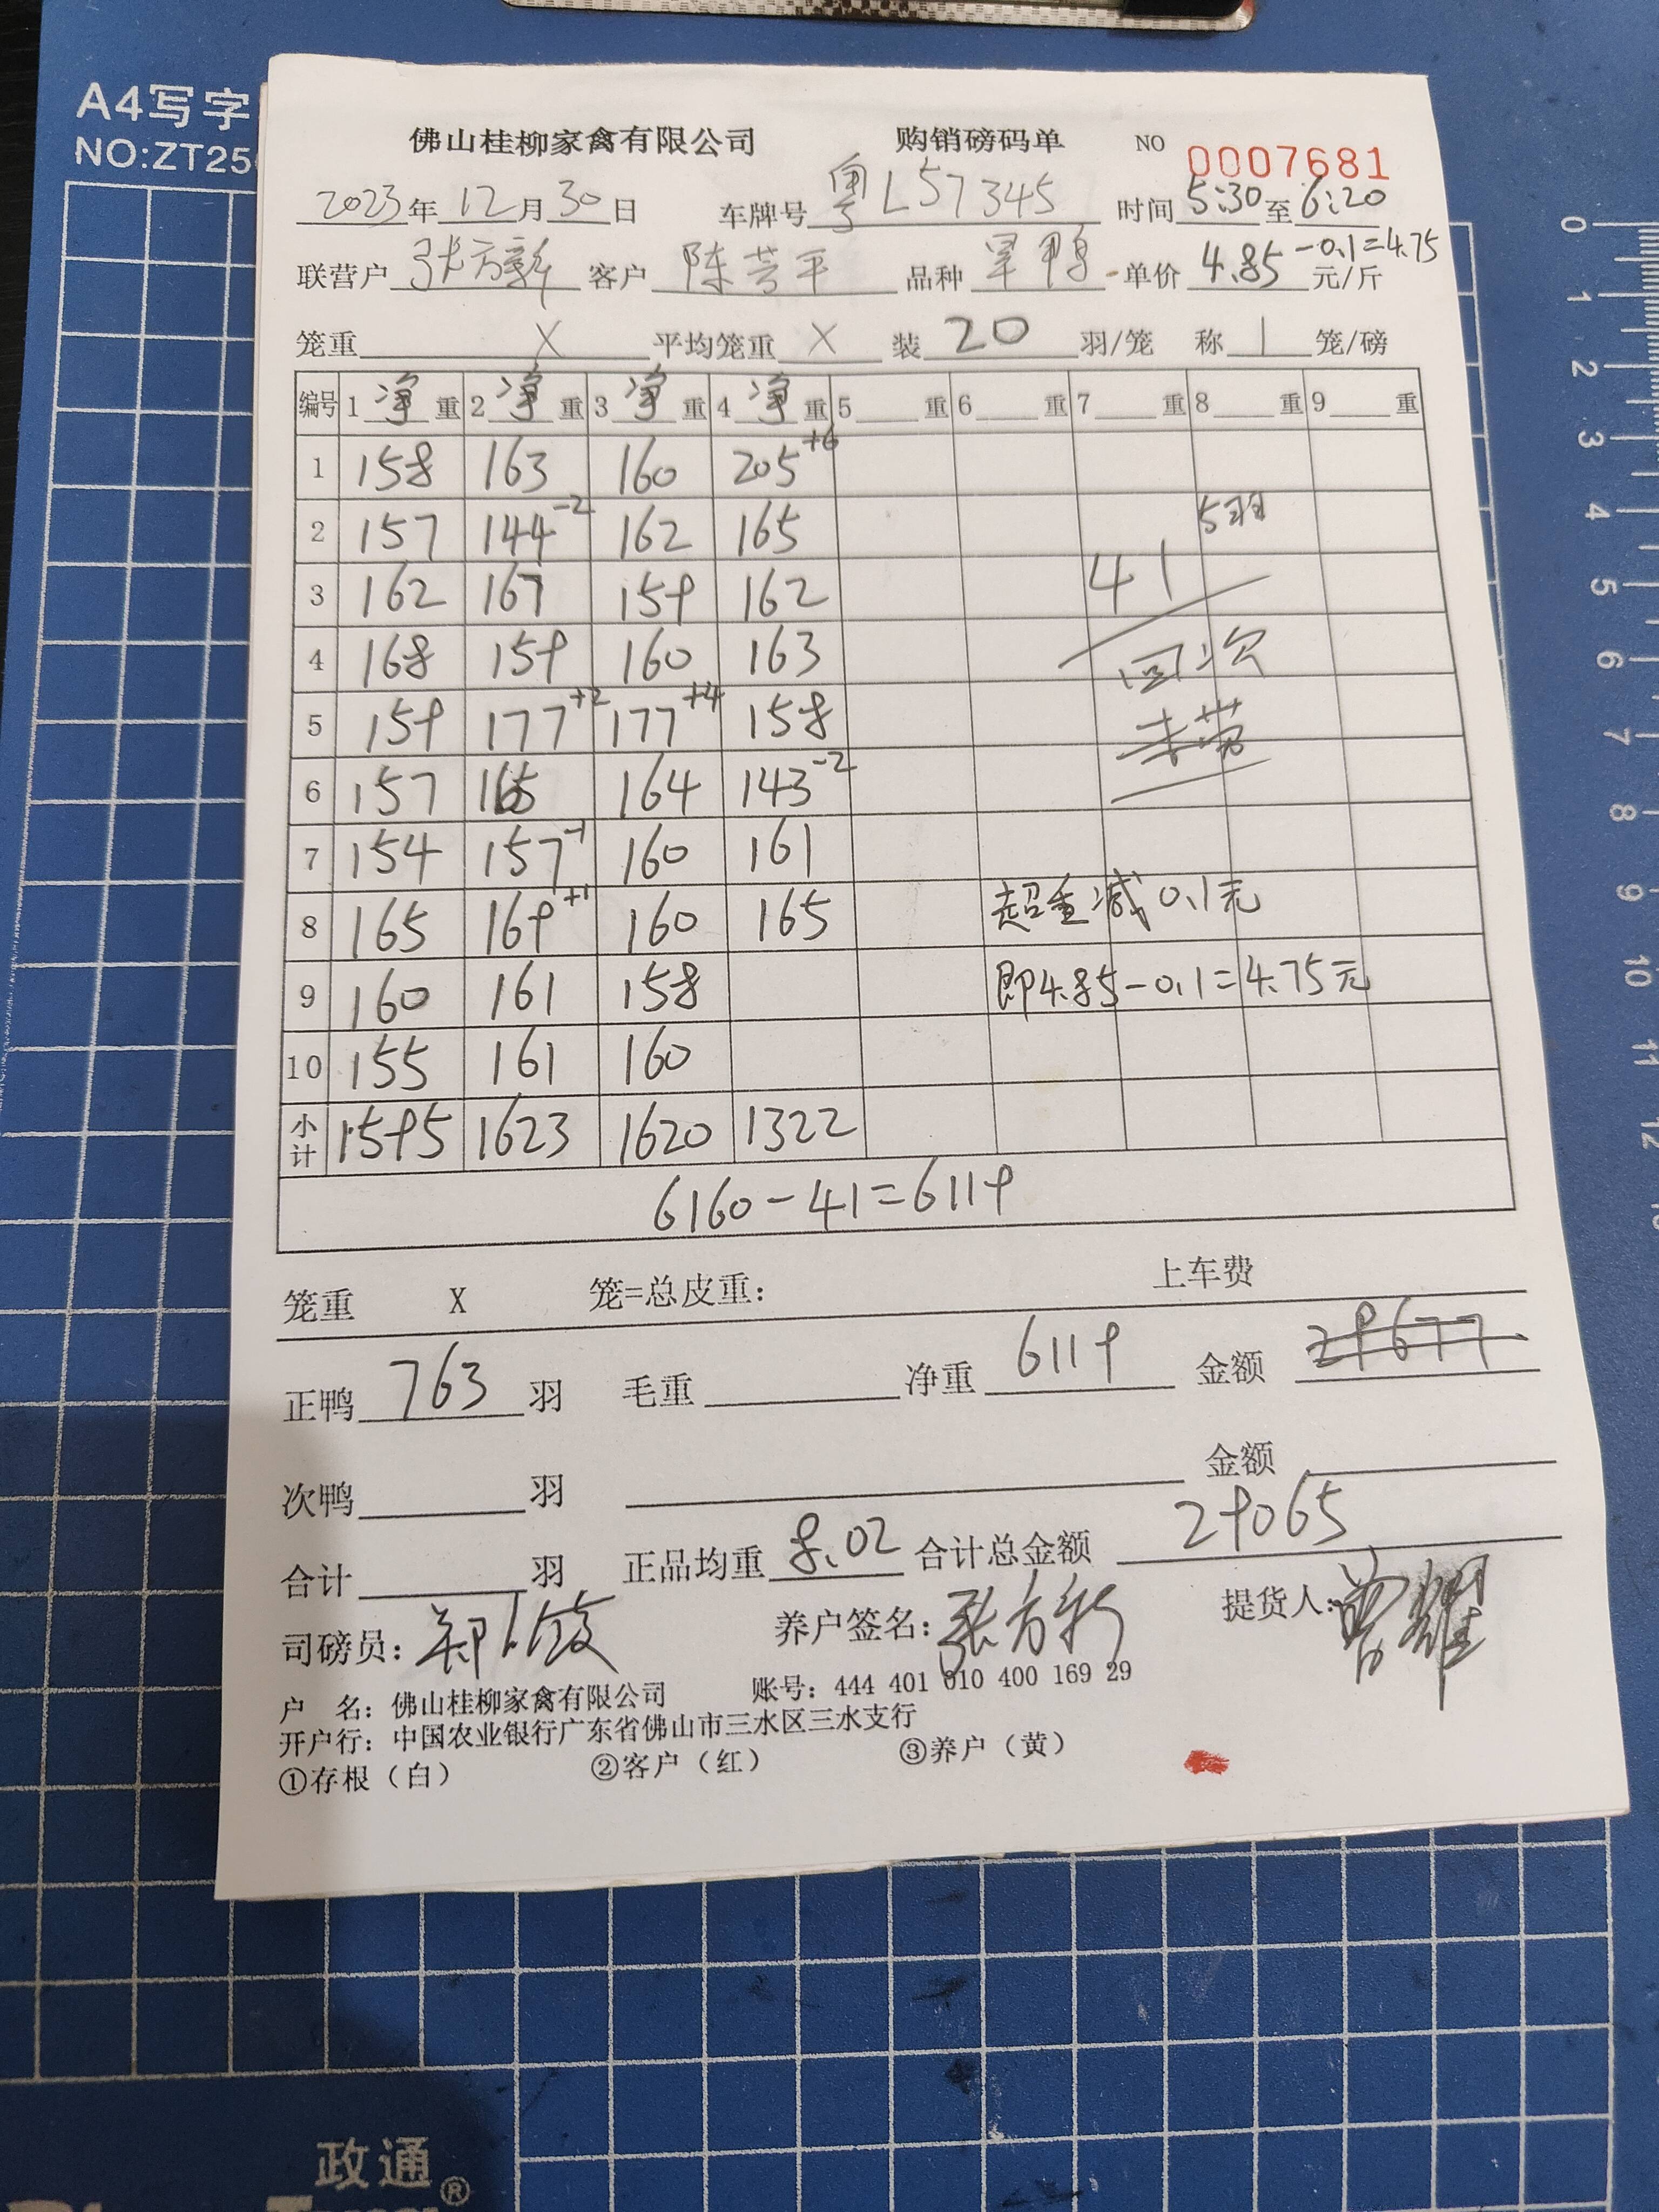 A4写字
NO:ZT25
佛山桂柳家禽有限公司 购销磅码单 NO 0007681
2023年12月30日 车牌号粤L57345 时间5:30至6:20
联营户张方新 客户陈芸平 品种旱鸭 单价4.85-0.1=4.75元/斤
笼重X平均笼重X装20羽/笼 称1笼/磅
编号 1净重 2净重 3净重 4净重 5重 6重 7重 8重 9重
1 158 163 160 205+6
2 157 144-2 162 165 5羽
3 162 167 159 162 41
4 168 159 160 163 回次
5 159 177+2 177+4 158
6 157 165 164 143-2
7 154 157-1 160 161
8 165 169+1 160 165 超重减0.1元
9 160 161 158 即4.85-0.1=4.75元
10 155 161 160
小计 1595 1623 1620 1322
6160-41=6119
笼重 X 笼=总皮重: 上车费
正鸭763羽 毛重 净重6119 金额29677
次鸭 羽 金额
合计 羽 正品均重8.02 合计总金额29065
司磅员: 养户签名:张方新 提货人:曾耀
户 名: 佛山桂柳家禽有限公司 账号: 444 401 010 400 169 29
开户行: 中国农业银行广东省佛山市三水区三水支行
①存根(白) ②客户(红) ③养户(黄)
0
1
2
3
4
5
6
7
8
9
10
11
12
政通®